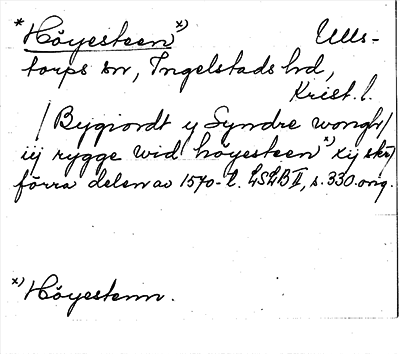 * Höyesteen x) Ulls-
torps sn, Ingelstads hd,
Krist. l.
/ Bygiordt y Syndre wongh /
iij rygge wid höyesteen x) xij skr /
förra delen av 1570-t. LSLB II, s. 330. orig.
x) Höyestenn.